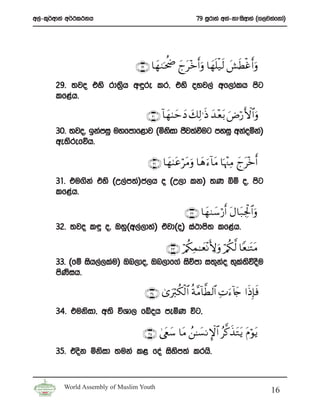 අල්-කුර්ආන් අර්ථකථනය 79 සූරාහ් අන්-නාසිආත් (ගලවන්නෝ)
وَأَغْطَشَ لَيْلَهَا وَأَخْرَجَ ضُحَىٰهَا ﴿٢٩﴾
29. තවද එහි රාත්‍රිය අඳුරු කර, එහි දහවල් ආලෝකය පිට
කළේය.
وَٱلْأَرْضَ بَعْدَ ذَٰلِكَ دَحَىٰهَآ ﴿٣٠﴾
30. තවද, ඉන්පසු මහපොළොව (මිනිසා ජීවත්වීමට පහසු අන්දමින්)
ඇතිරුවේය.
أَخْرَجَ مِنْهَا مَآءَهَا وَمَرْعَىٰهَا ﴿٣١﴾
31. එමගින් එහි (උල්පත්)ජලය ද (උලා කන) තණ බිම් ද, පිට
කළේය.
وَٱلْجِبَالَ أَرْسَىٰهَا ﴿٣٢﴾
32. තවද කඳු ද, ඔහු(අල්ලාහ්) එවා(ද) ස්ථාපිත කළේය.
مَتَٰعًا لَّكُمْ وَلِأَنْعَٰمِكُمْ ﴿٣٣﴾
33. (මේ සියල්ලක්ම) ඔබලාද, ඔබලාගේ සිව්පා සතුන්ද භුක්තිවිඳීම
පිණිසය.
فَإِذَا جَآءَتِ ٱلطَّآمَّةُ ٱلْكُبْرَىٰ ﴿٣٤﴾
34. එමනිසා, අති විශාල ඛේදය පැමිණි විට,
يَوْمَ يَتَذَكَّرُ ٱلْإِنسَٰنُ مَا سَعَىٰ ﴿٣٥﴾
35. එදින මිනිසා තමන් කළ දේ සිහිපත් කරයි.
World Assembly of Muslim Youth 16